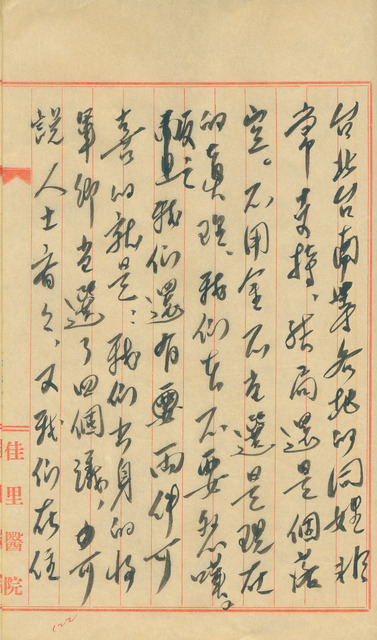 台北台南等各地的同姓非
常支持、結局還是個落
空。不用金不当選是現在
的真理、我們在不要怒嘆。
反之我們還有要兩件可
喜的就是：我們出身的將
軍鄉当選了四個議，也可
說人士者々、又我們在住
佳里醫院
122